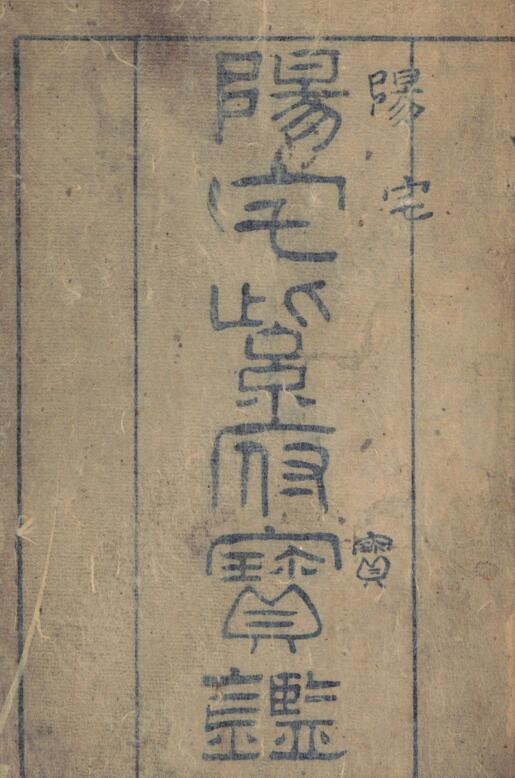 陽宅
寶
陽宅紫府寶鑑